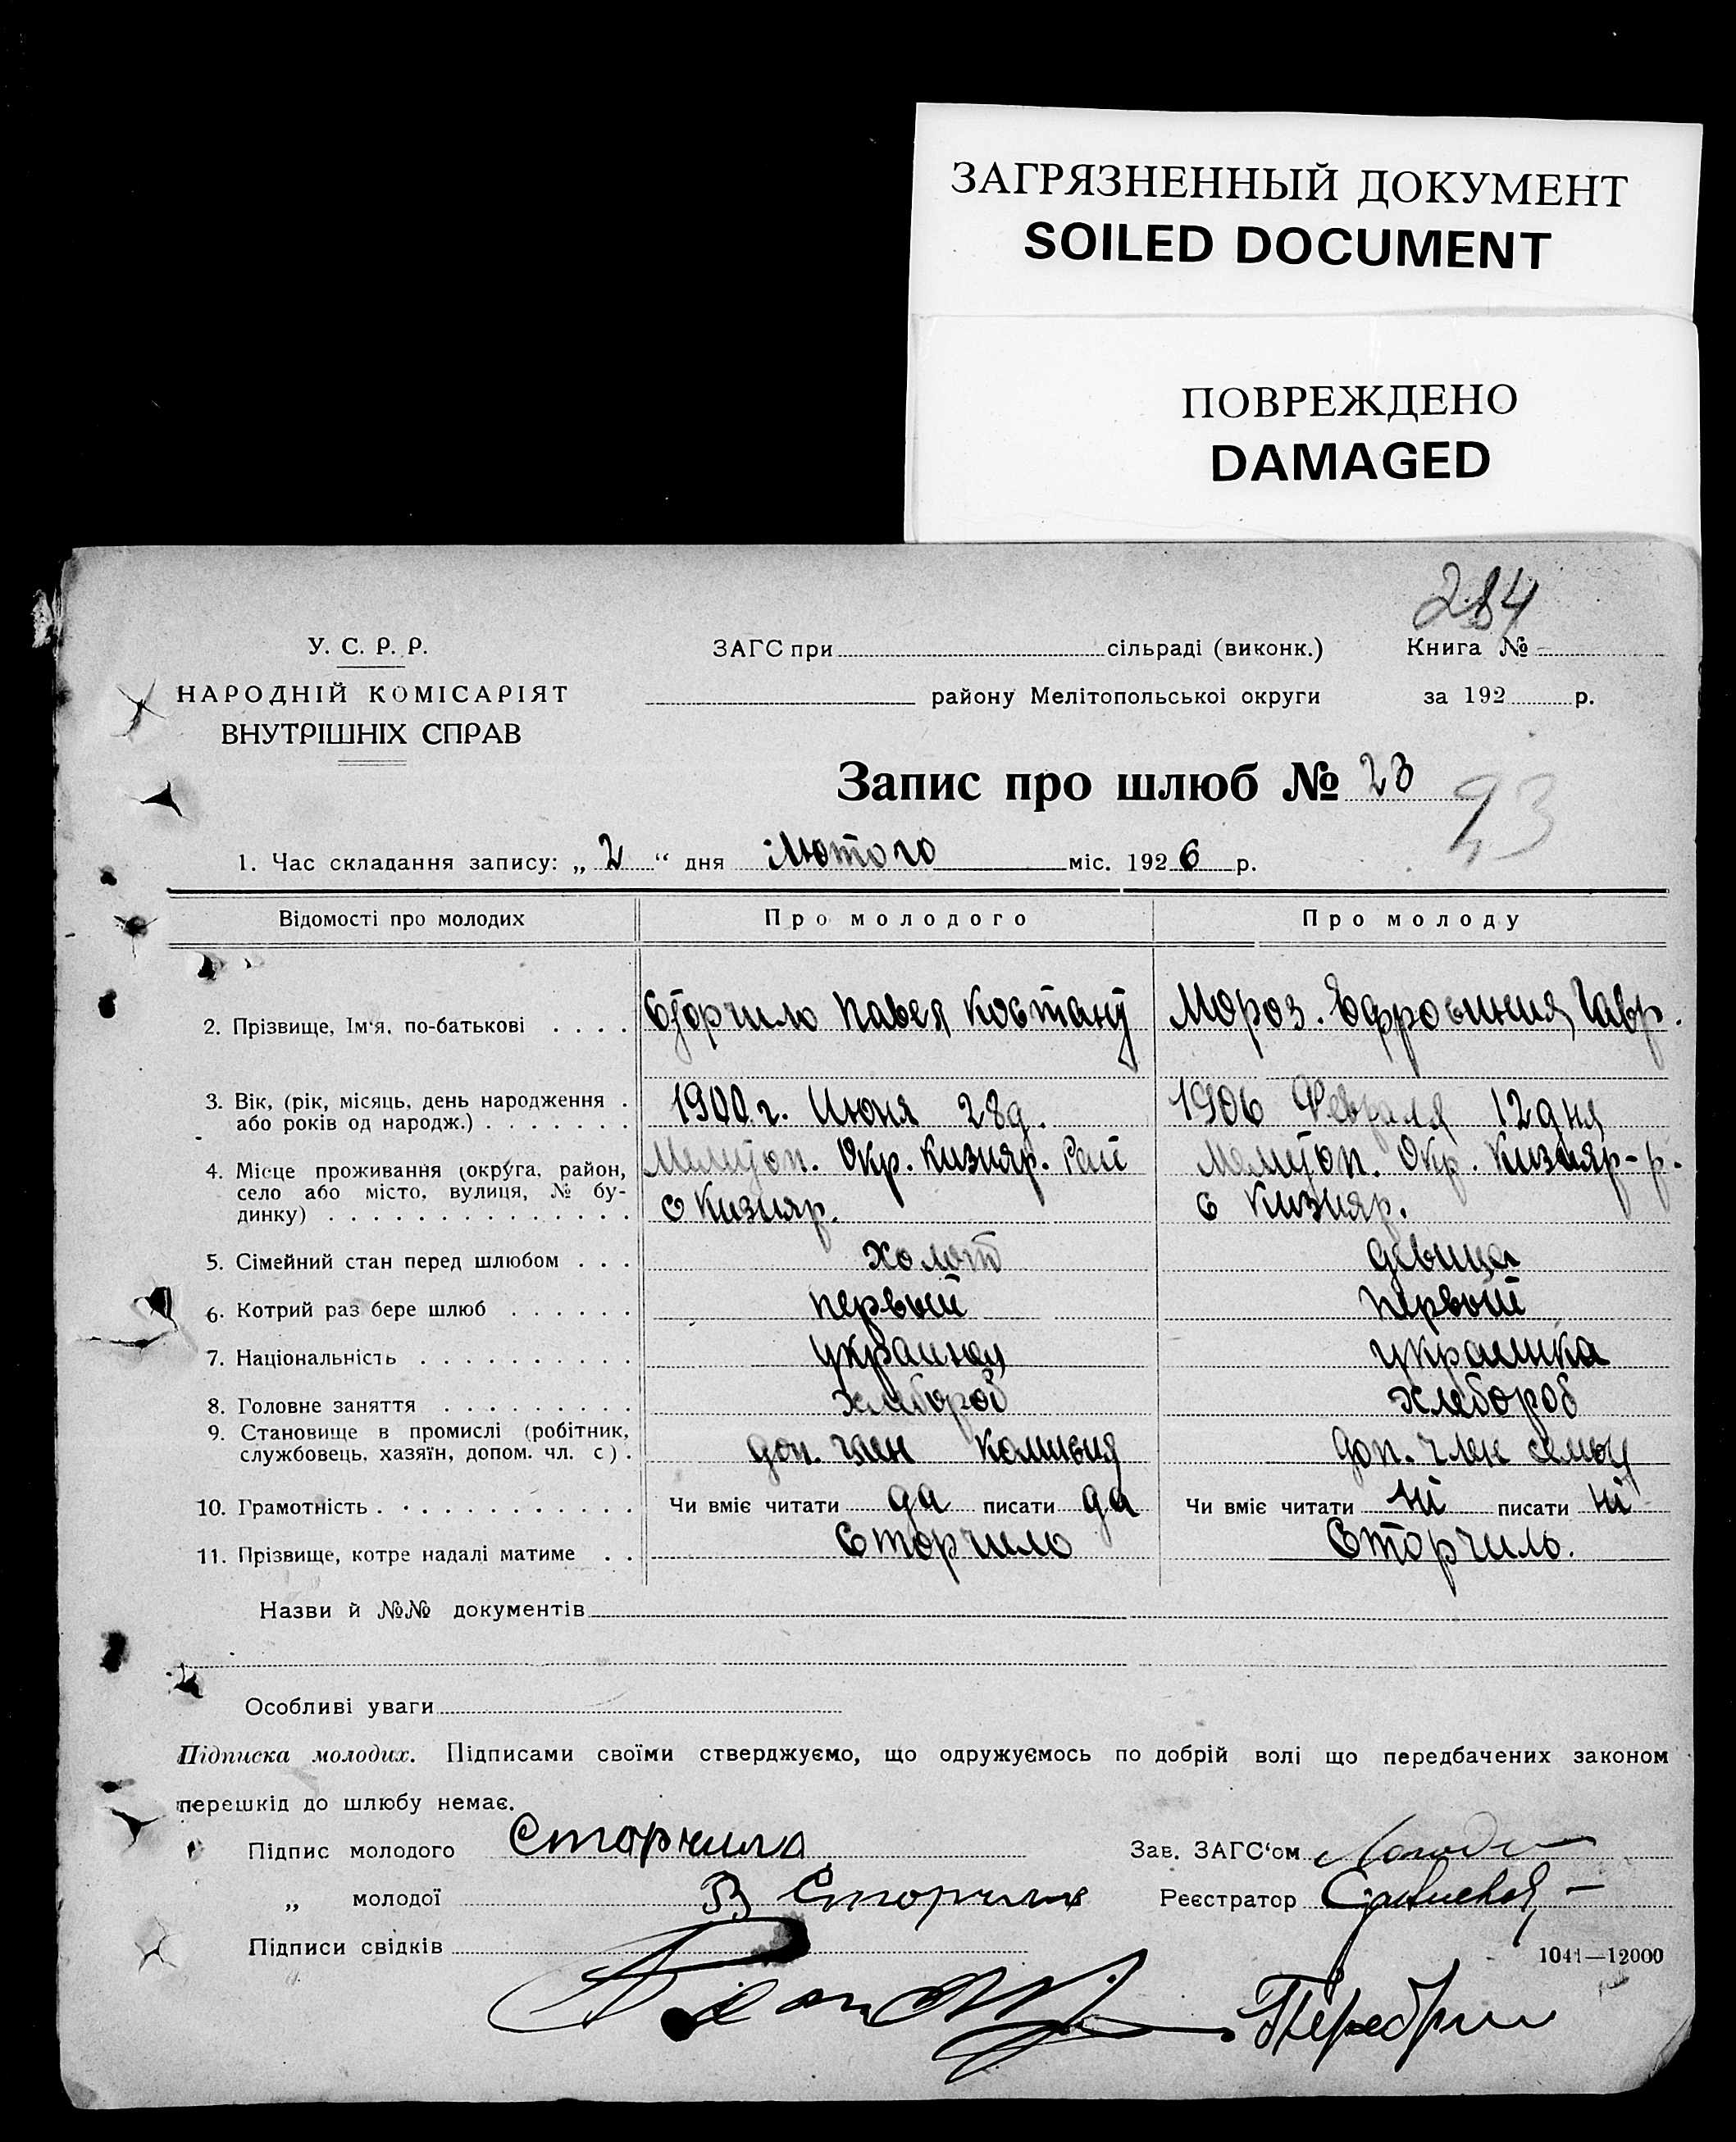 ЗАГРЯЗНЕННЫЙ ДОКУМЕНТ
SOILED DOCUMENT
ПОВРЕЖДЕНО
DAMAGED
284
У. С. Р. Р.
НАРОДНІЙ КОМІСАРІЯТ
ВНУТРІШНІХ СПРАВ
ЗАГС при сільраді (виконк.) Книга №
району Мелітопольської округи за 192 р.
Запис про шлюб № 23
23
1. Час складання запису: „ 2 “ дня Лютого міс. 1926 р.
Відомості про молодих Про молодого Про молоду
2. Прізвище, Ім'я, по-батькові . . . . Сторчило Павел Мороз. Ефросиния Гавр.
3. Вік, (рік, місяць, день народження . 1900 г. Июня 28 д. 1906 Февраля 12 дня
або років од народж.) . . . . . . .
4. Місце проживання (округа, район, Мелитоп. Окр. Кизияр. Рай Мелитоп. Окр. Кизияр-р.
село або місто, вулиця, № бу-
динку) . . . . . . . . . . . . . . с Кизияр. с Кизияр.
5. Сімейний стан перед шлюбом . . . холост девица
6. Котрий раз бере шлюб . . . . . . первый первый
7. Національність . . . . . . . . . . украинец украинка
8. Головне заняття . . . . . . . . . хлебороб хлебороб
9. Становище в промислі (робітник,
службовець, хазяїн, допом. чл. с) . доп. член доп. член семьи
10. Грамотність . . . . . . . . . . . . Чи вміє читати да писати да Чи вміє читати ні писати ні
11. Прізвище, котре надалі матиме . . Сторчило Сторчило.
Назви й №№ документів
Особливі уваги
Підписка молодих. Підписами своїми стверджуємо, що одружуємось по добрій волі що передбачених законом
перешкід до шлюбу немає.
Підпис молодого Сторчило Зав. ЗАГС'ом
„ молодої Сторчило Реєстратор
Підписи свідків
1041—12000